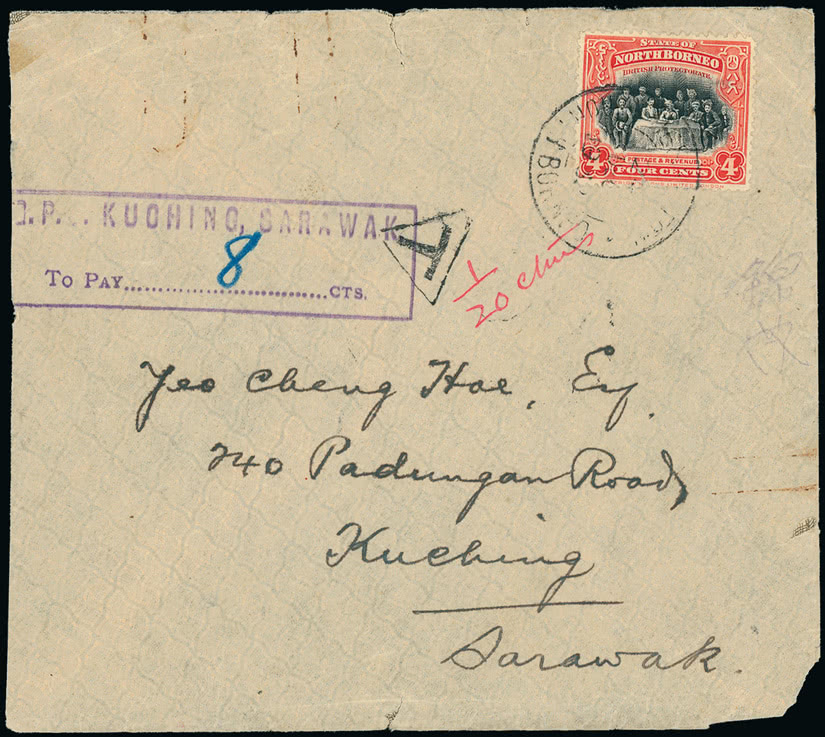 STATE OF
NORTH BORNEO
BRITISH PROTECTORATE
POSTAGE & REVENUE
4 FOUR CENTS 4
G.P.O. KUCHING, SARAWAK
To PAY 8 CTS.
T
1
20 ctms
Yeo Cheng Hoe, Esq.
240 Padungan Road,
Kuching
Sarawak.